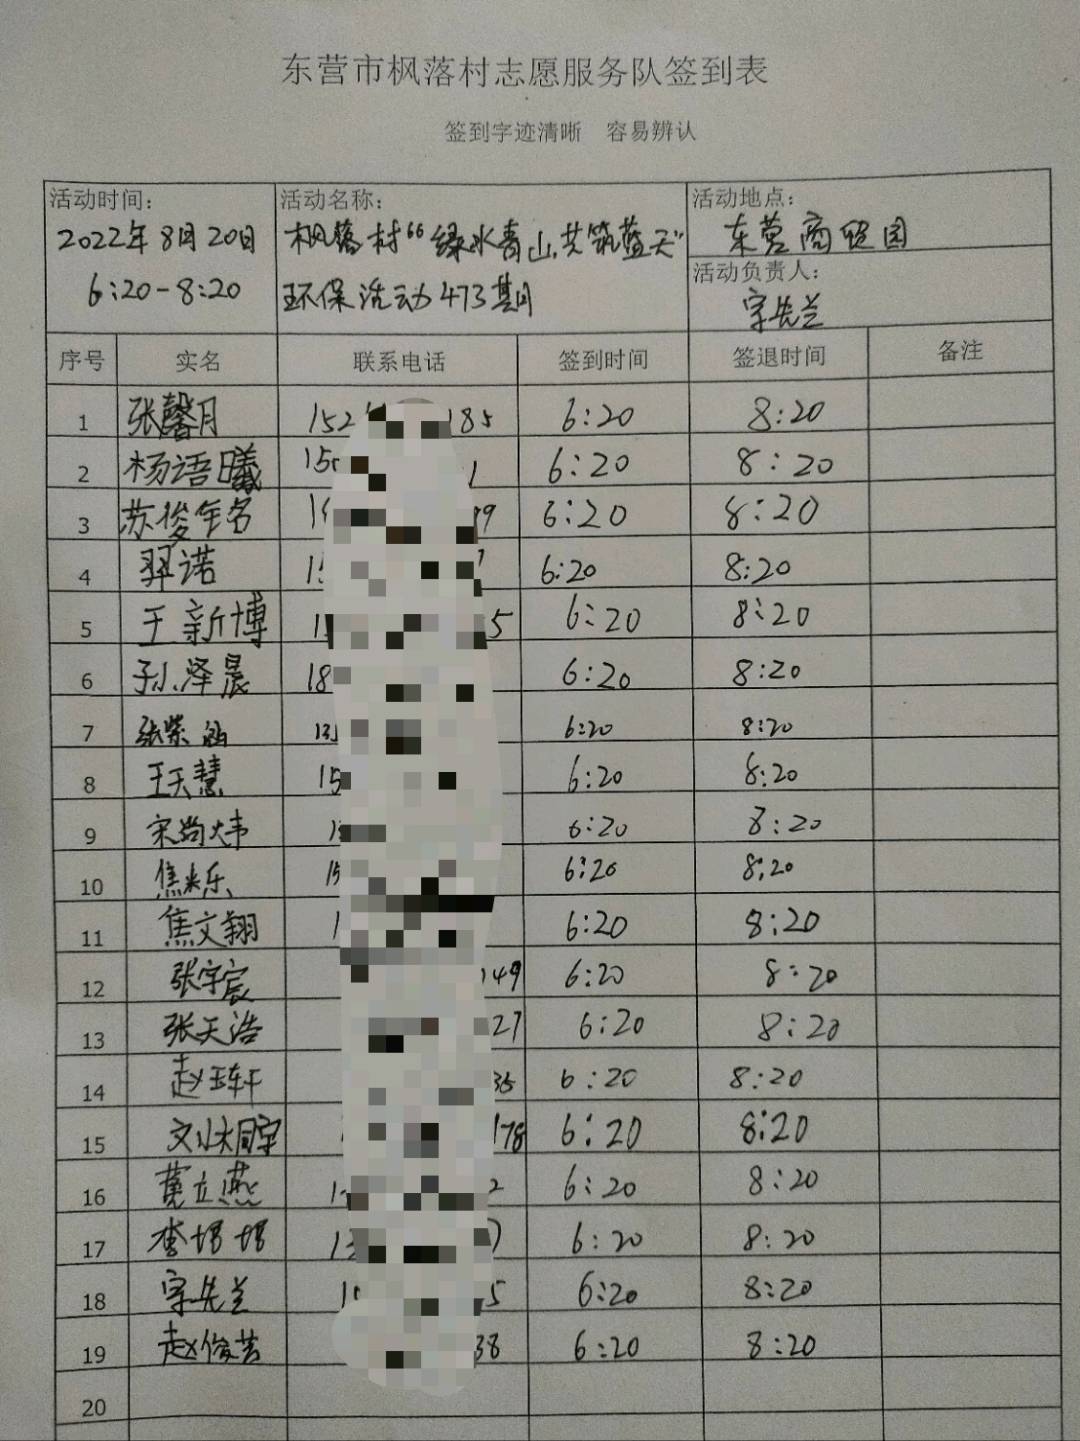 东营市枫落村志愿服务队签到表
签到字迹清晰 容易辨认
活动时间：
2022年8月20日
6:20-8:20
活动名称：
枫落村“绿水青山，共筑蓝天”
环保活动473期
活动地点：
东营商贸园
活动负责人：
序号 实名 联系电话 签到时间 签退时间 备注
1 张馨月 152 185 6:20 8:20
2 杨语曦 15 1 6:20 8:20
3 苏俊名 1 9 6:20 8:20
4 诺 15 6:20 8:20
5 王新博 1 5 6:20 8:20
6 孙泽晨 18 6:20 8:20
7 张紫涵 13 6:20 8:20
8 王天慧 15 6:20 8:20
9 宋尚炜 1 6:20 8:20
10 焦烁 15 6:20 8:20
11 焦文翔 1 6:20 8:20
12 张宇宸 149 6:20 8:20
13 张天浩 27 6:20 8:20
14 赵珏轩 35 6:20 8:20
15 178 6:20 8:20
16 立燕 1 2 6:20 8:20
17 李 13 6:20 8:20
18 1 5 6:20 8:20
19 赵俊芸 38 6:20 8:20
20